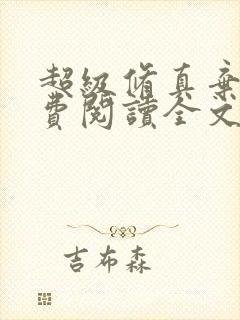 超級脩真棄
費閱讀全文
吉布森